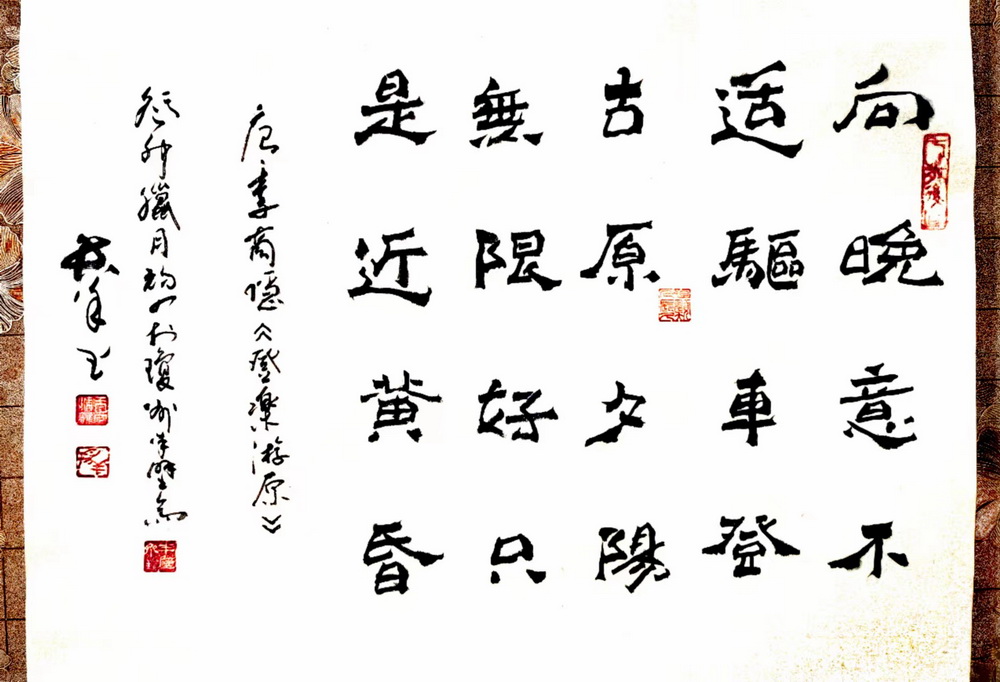 向晚意不
適驅車登
古原夕陽
無限好只
是近黄昏
唐·李商隱《登樂游原》
臘月